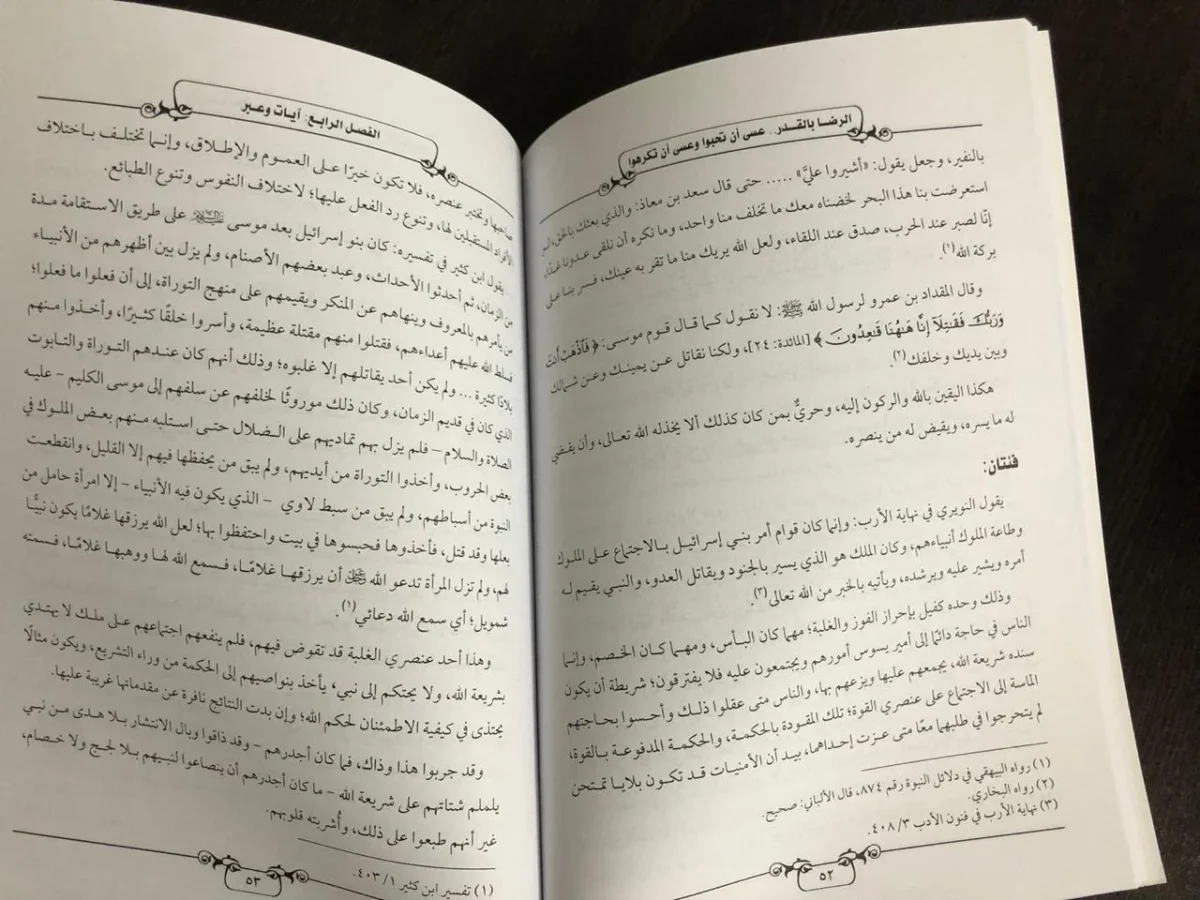 الرضا بالقـدر.. عسى أن تحبوا وعسى أن تكرهوا
بالنفير، وجعل يقول: «أشيروا عليَّ» ..... حتى قال سعد بن معاذ: والذي بعثك بالحق، لو
استعرضت بنا هذا البحر لخضناه معك ما تخلف منا واحد، وما نكره أن نلقى عدونا غدًا،
إنَّا لصبر عند الحرب، صدق عند اللقاء، ولعل الله يريك منا ما تقر به عينك، فسر بنا على
بركة الله(١).
وقال المقداد بن عمرو لرسول الله ﷺ: لا نقول كما قال قوم موسى: ﴿ فَٱذۡهَبۡ أَنتَ
وَرَبُّكَ فَقَٰتِلَآ إِنَّا هَٰهُنَا قَٰعِدُونَ ﴾ [المائدة: ٢٤]، ولكنا نقاتل عن يمينك وعن شمالك
وبين يديك وخلفك(٢).
هكذا اليقين بالله والركون إليه، وحريٌّ بمن كان كذلك ألا يخذله الله تعالى، وأن يقضي
له ما يسره، ويقيض له من ينصره.
فئتان:
يقول النويري في نهاية الأرب: وإنما كان قوام أمر بني إسرائيل بالاجتماع على الملوك
وطاعة الملوك أنبياءهم، وكان الملك هو الذي يسير بالجنود ويقاتل العدو، والنبي يقيم له
أمره ويشير عليه ويرشده، ويأتيه بالخبر من الله تعالى(٣).
وذلك وحده كفيل بإحراز الفوز والغلبة؛ مهما كان البأس، ومهما كان الخصم، وإنما
الناس في حاجة دائمًا إلى أمير يسوس أمورهم ويجتمعون عليه فلا يفترقون؛ شريطة أن يكون
سنده شريعة الله، يجمعهم عليها ويزعهم بها، والناس متى عقلوا ذلك وأحسوا بحاجتهم
الماسة إلى الاجتماع على عنصري القوة؛ تلك المقودة بالحكمة، والحكمة المدفوعة بالقوة،
لم يتحرجوا في طلبهما معًا متى عزت إحداهما، بيد أن الأمنيات قد تكون بلايا تمتحن
(١) رواه البيهقي في دلائل النبوة رقم ٨٧٤، قال الألباني: صحيح.
(٢) رواه البخاري.
(٣) نهاية الأرب في فنون الأدب ٣/ ٤٠٨.
٥٢
الفصل الرابع: آيات وعبر
صاحبها وتختبر عنصره، فلا تكون خيرًا على العموم والإطلاق، وإنما تختلف باختلاف
الأفراد المستقبلين لها، وتنوع رد الفعل عليها؛ لاختلاف النفوس وتنوع الطبائع.
يقول ابن كثير في تفسيره: كان بنو إسرائيل بعد موسى عليه السلام على طريق الاستقامة مدة
من الزمان، ثم أحدثوا الأحداث، وعبد بعضهم الأصنام، ولم يزل بين أظهرهم من الأنبياء
من يأمرهم بالمعروف وينهاهم عن المنكر ويقيمهم على منهج التوراة، إلى أن فعلوا ما فعلوا؛
فسلط الله عليهم أعداءهم، فقتلوا منهم مقتلة عظيمة، وأسروا خلقًا كثيرًا، وأخذوا منهم
بلادًا كثيرة ... ولم يكن أحد يقاتلهم إلا غلبوه؛ وذلك أنهم كان عندهم التوراة والتابوت
الذي كان في قديم الزمان، وكان ذلك موروثًا لخلفهم عن سلفهم إلى موسى الكليم – عليه
الصلاة والسلام – فلم يزل بهم تماديهم على الضلال حتى استلبه منهم بعض الملوك في
بعض الحروب، وأخذوا التوراة من أيديهم، ولم يبق من يحفظها فيهم إلا القليل، وانقطعت
النبوة من أسباطهم، ولم يبق من سبط لاوي – الذي يكون فيه الأنبياء – إلا امرأة حامل من
بعلها وقد قتل، فأخذوها فحبسوها في بيت واحتفظوا بها؛ لعل الله يرزقها غلامًا يكون نبيًّا
لهم، ولم تزل المرأة تدعو الله ﷻ أن يرزقها غلامًا، فسمع الله لها ووهبها غلامًا، فسمته
شمويل؛ أي سمع الله دعائي(١).
وهذا أحد عنصري الغلبة قد تقوض فيهم، فلم ينفعهم اجتماعهم على ملك لا يهتدي
بشريعة الله، ولا يحتكم إلى نبي، يأخذ بنواصيهم إلى الحكمة من وراء التشريع، ويكون مثالًا
يحتذى في كيفية الاطمئنان لحكم الله؛ وإن بدت النتائج نافرة عن مقدماتها غريبة عليها.
وقد جربوا هذا وذاك، فما كان أجدرهم – وقد ذاقوا وبال الانتشار بلا هدى من نبي
يلملم شتاتهم على شريعة الله – ما كان أجدرهم أن ينصاعوا لنبيهم بلا لجج ولا خصام،
غير أنهم طبعوا على ذلك، وأُشربته قلوبهم.
(١) تفسير ابن كثير ١/ ٤٠٣.
٥٣